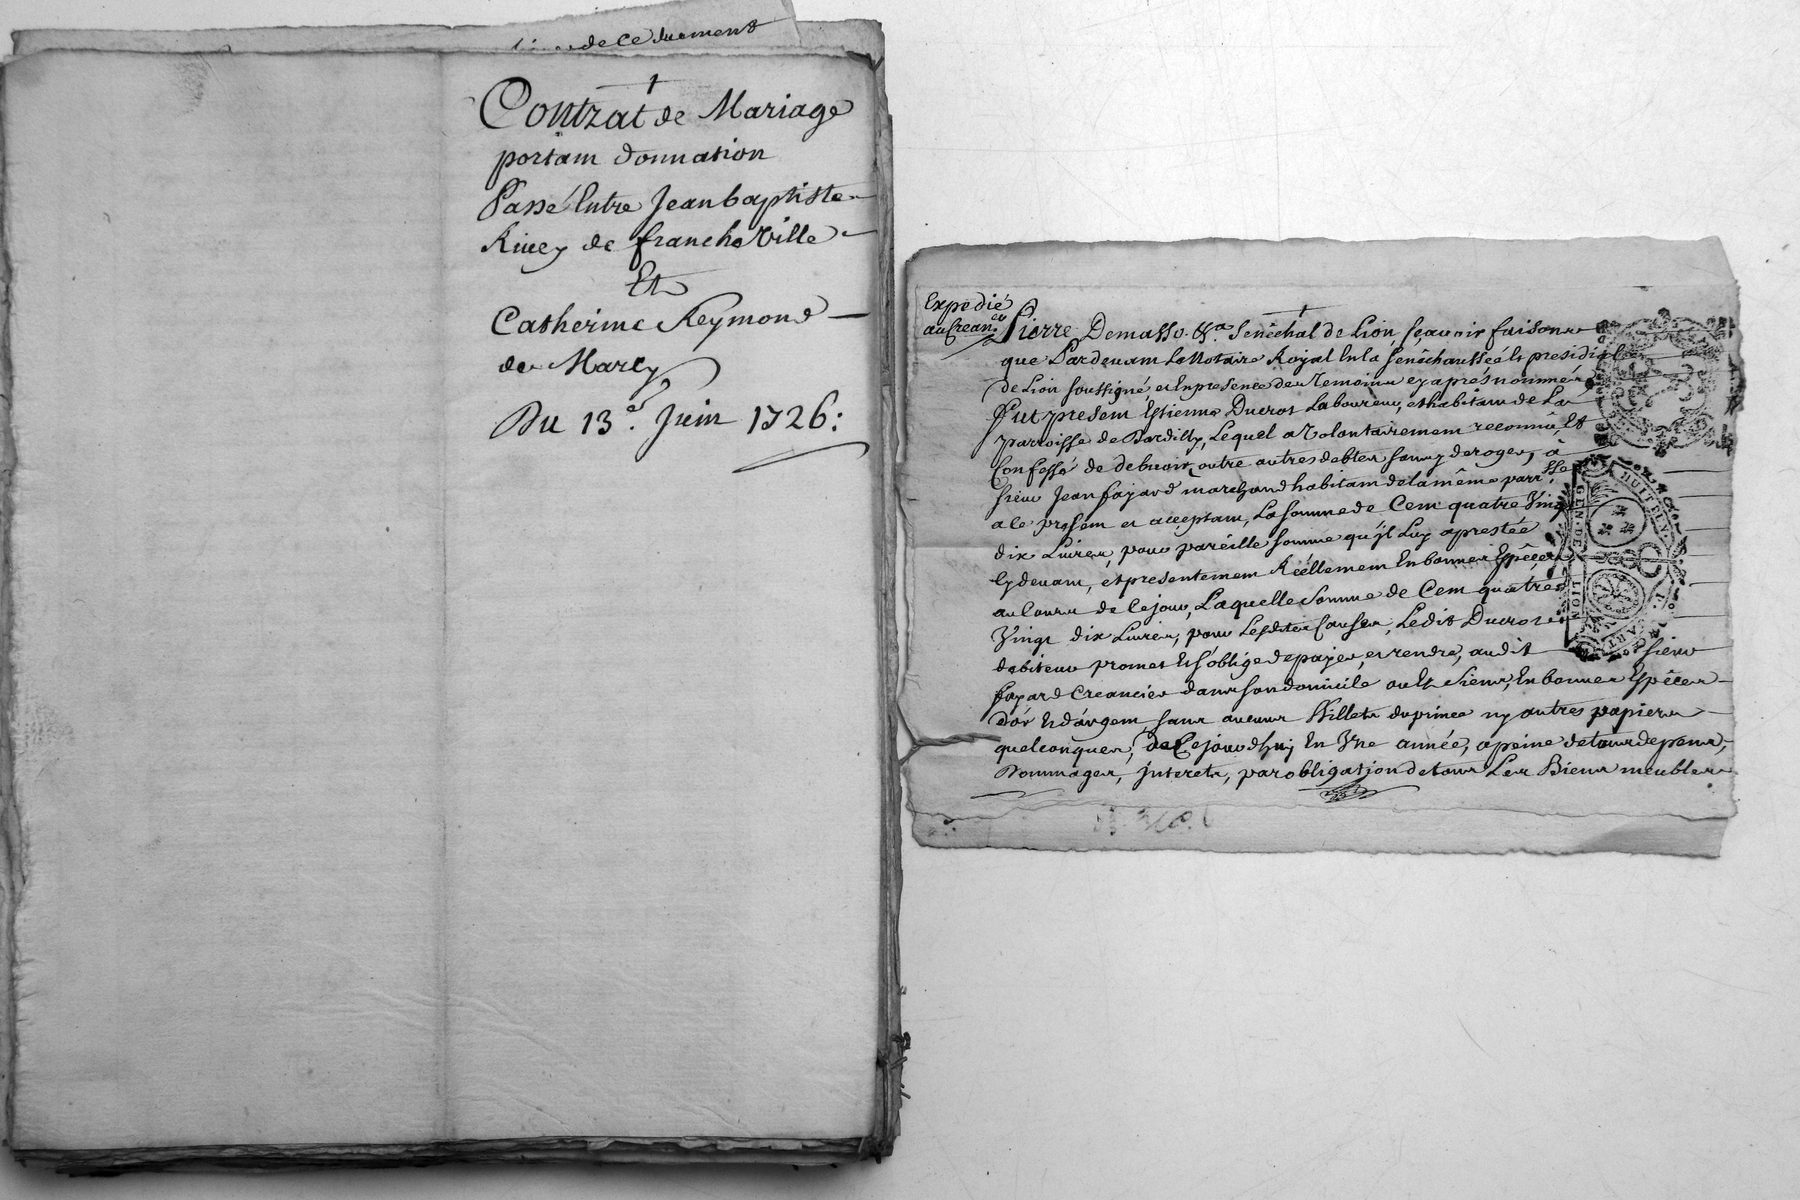 de Ce
Contrat de Mariage
portam donnation
Passé Entre Jean baptiste
Rivey de francheville
Et
Catherine Reymond
de Marcy
Du 13e. Juin 1726:
Expedié
au Crean.er
Pierre Demasso &a. Senêchal de Lion, sçavoir faisons
que Pardevam Le Notaire Royal En la senêchaussée Et presidial
de Lion soussigné, et En presence des Temoins cy aprés nommés
Fut presem Estienne Ducrot Laboureur, et habitam de La
parroisse de Dardilly, Lequel a Volontairemem reconnû, Et
Confessé de debvoir, outre autres debtes sans y deroger, à
sieur Jean fayard marchand habitam de la même parr.sse
a ce presem et acçeptam, La somme de Cem quatre Vingt
dix Livres, pour pareille somme qu'jl Luy a prestée
Cy devam, et presentemem Réellemem En bonnes Espêces
au Cours de Ce jour, Laquelle somme de Cem quatre
Vingt dix Livres, pour Lesdites Causes, Ledit Ducrot
debiteur promet Et s'oblige de payer, et rendre, audit sieur
fayard Creancier dans son domicile ou Es siens, En bonnes Espêces
d'ór Et d'árgem sans aucuns Billets du prince ny autres papiers
quelconques, de Ce jourd'huj En Vne année, a peine de tous depens,
Dommages, jnterets, par obligation de tous Les Biens meubles
HUIT
GEN. DE LION